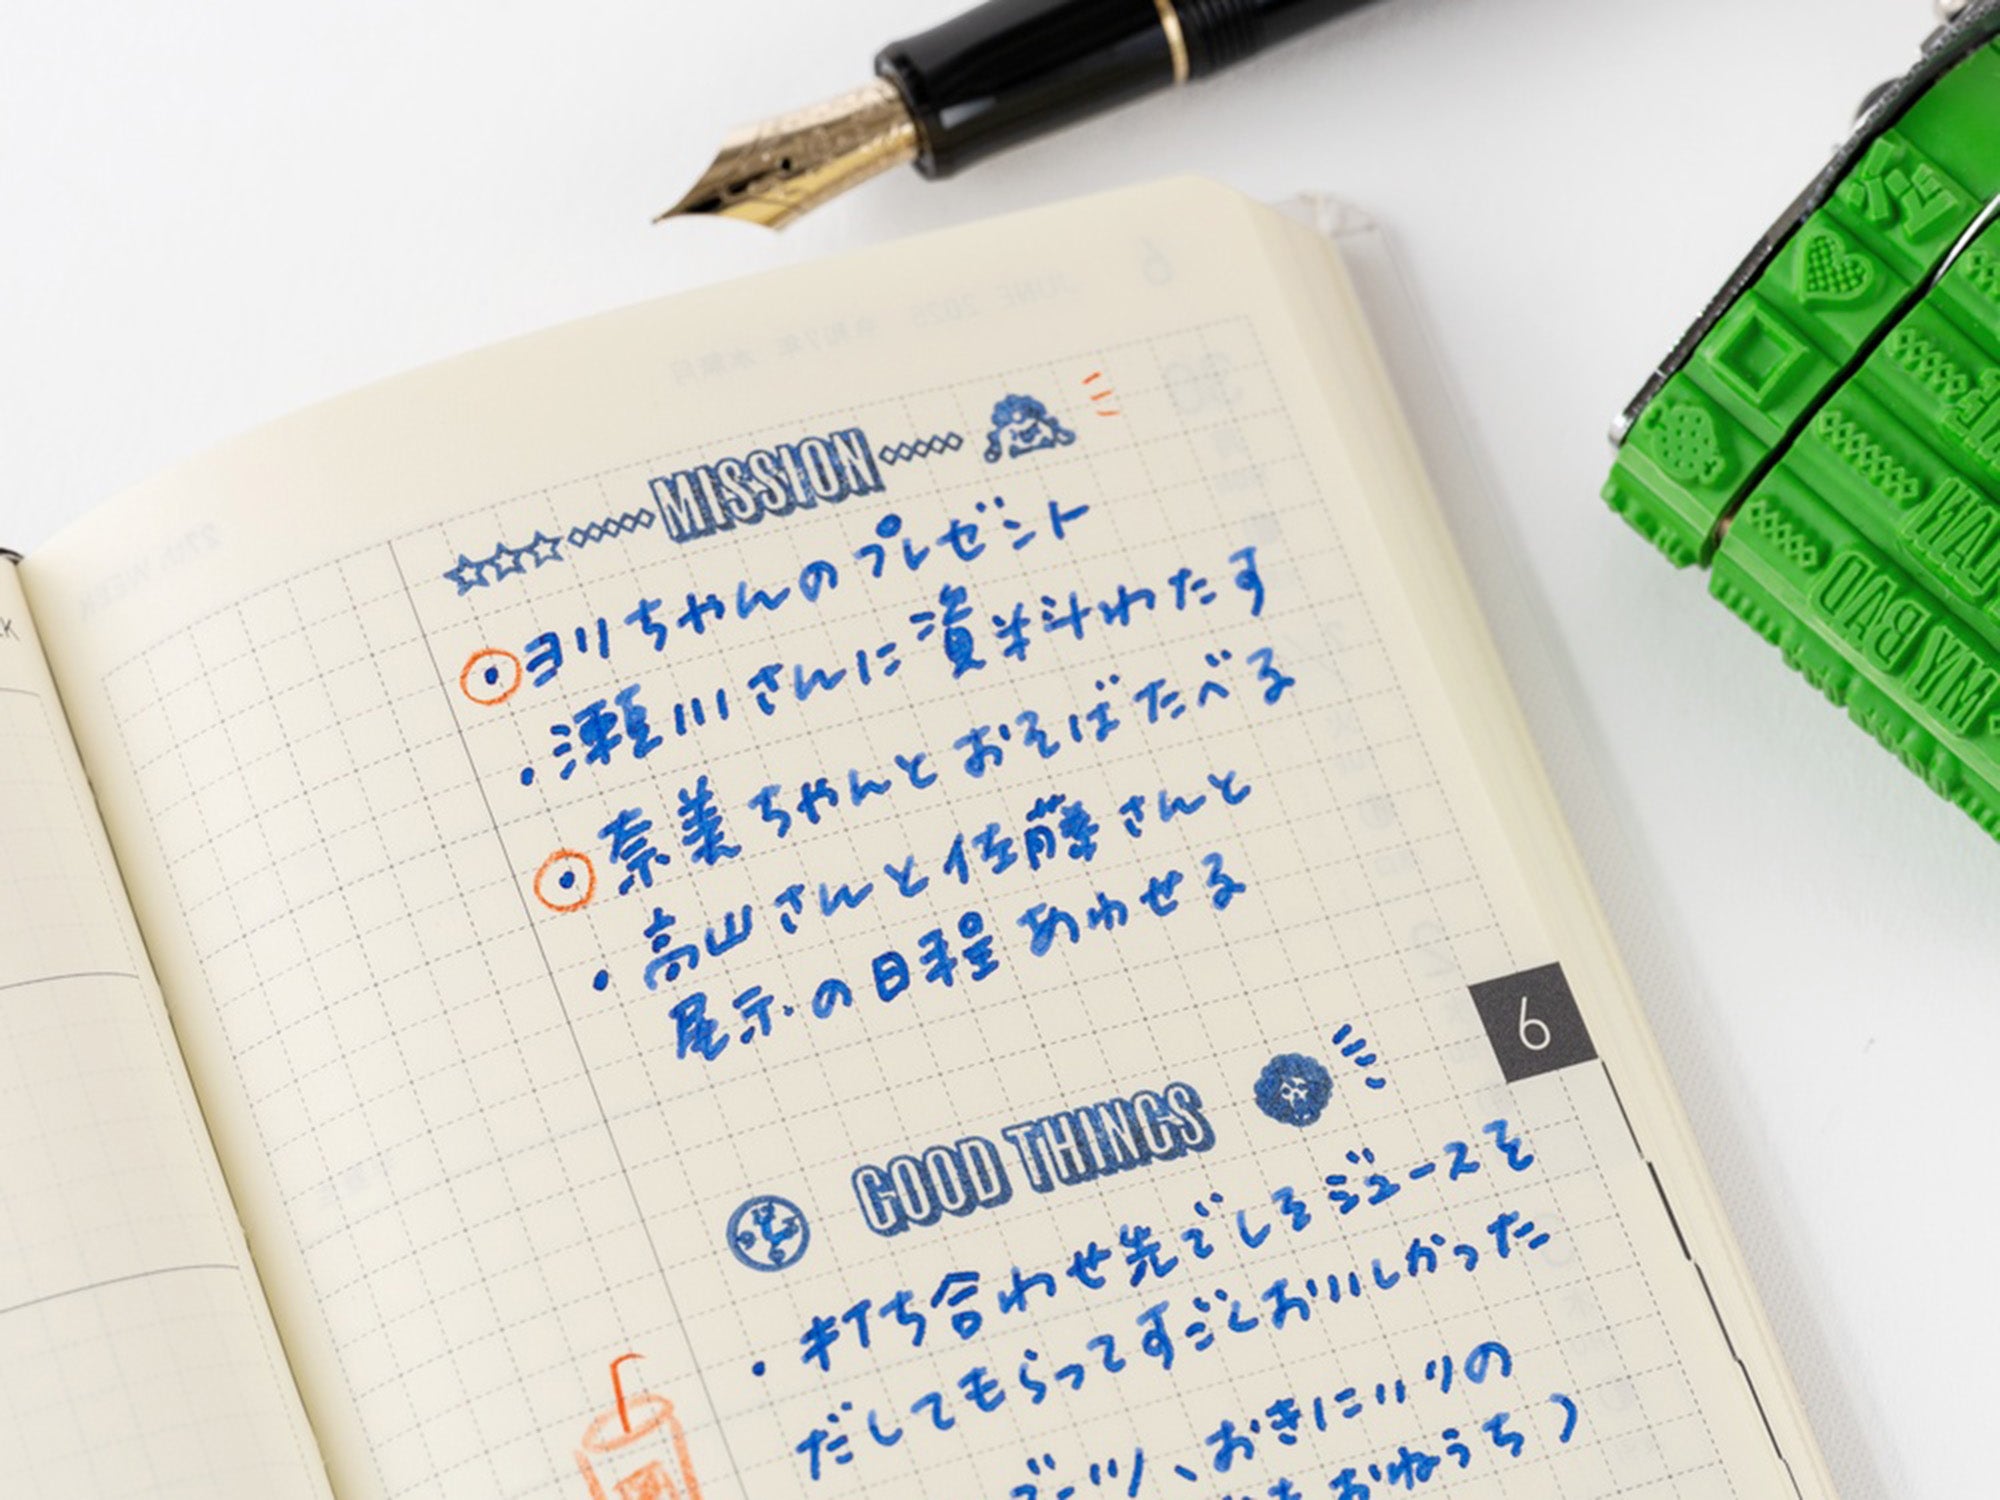 MISSION
・ヨリちゃんのプレゼント
・瀬川さんに資料わたす
・奈美ちゃんとおそばたべる
・高山さんと佐藤さんと
展示の日程あわせる
6
GOOD THINGS
・打ち合わせ先でしそジュースを
だしてもらってすごくおいしかった
ブーツ、おきにいりの
おねうち)
6
JUNE 2025 令和7年 水無月
30
27th WEEK
MY BAD